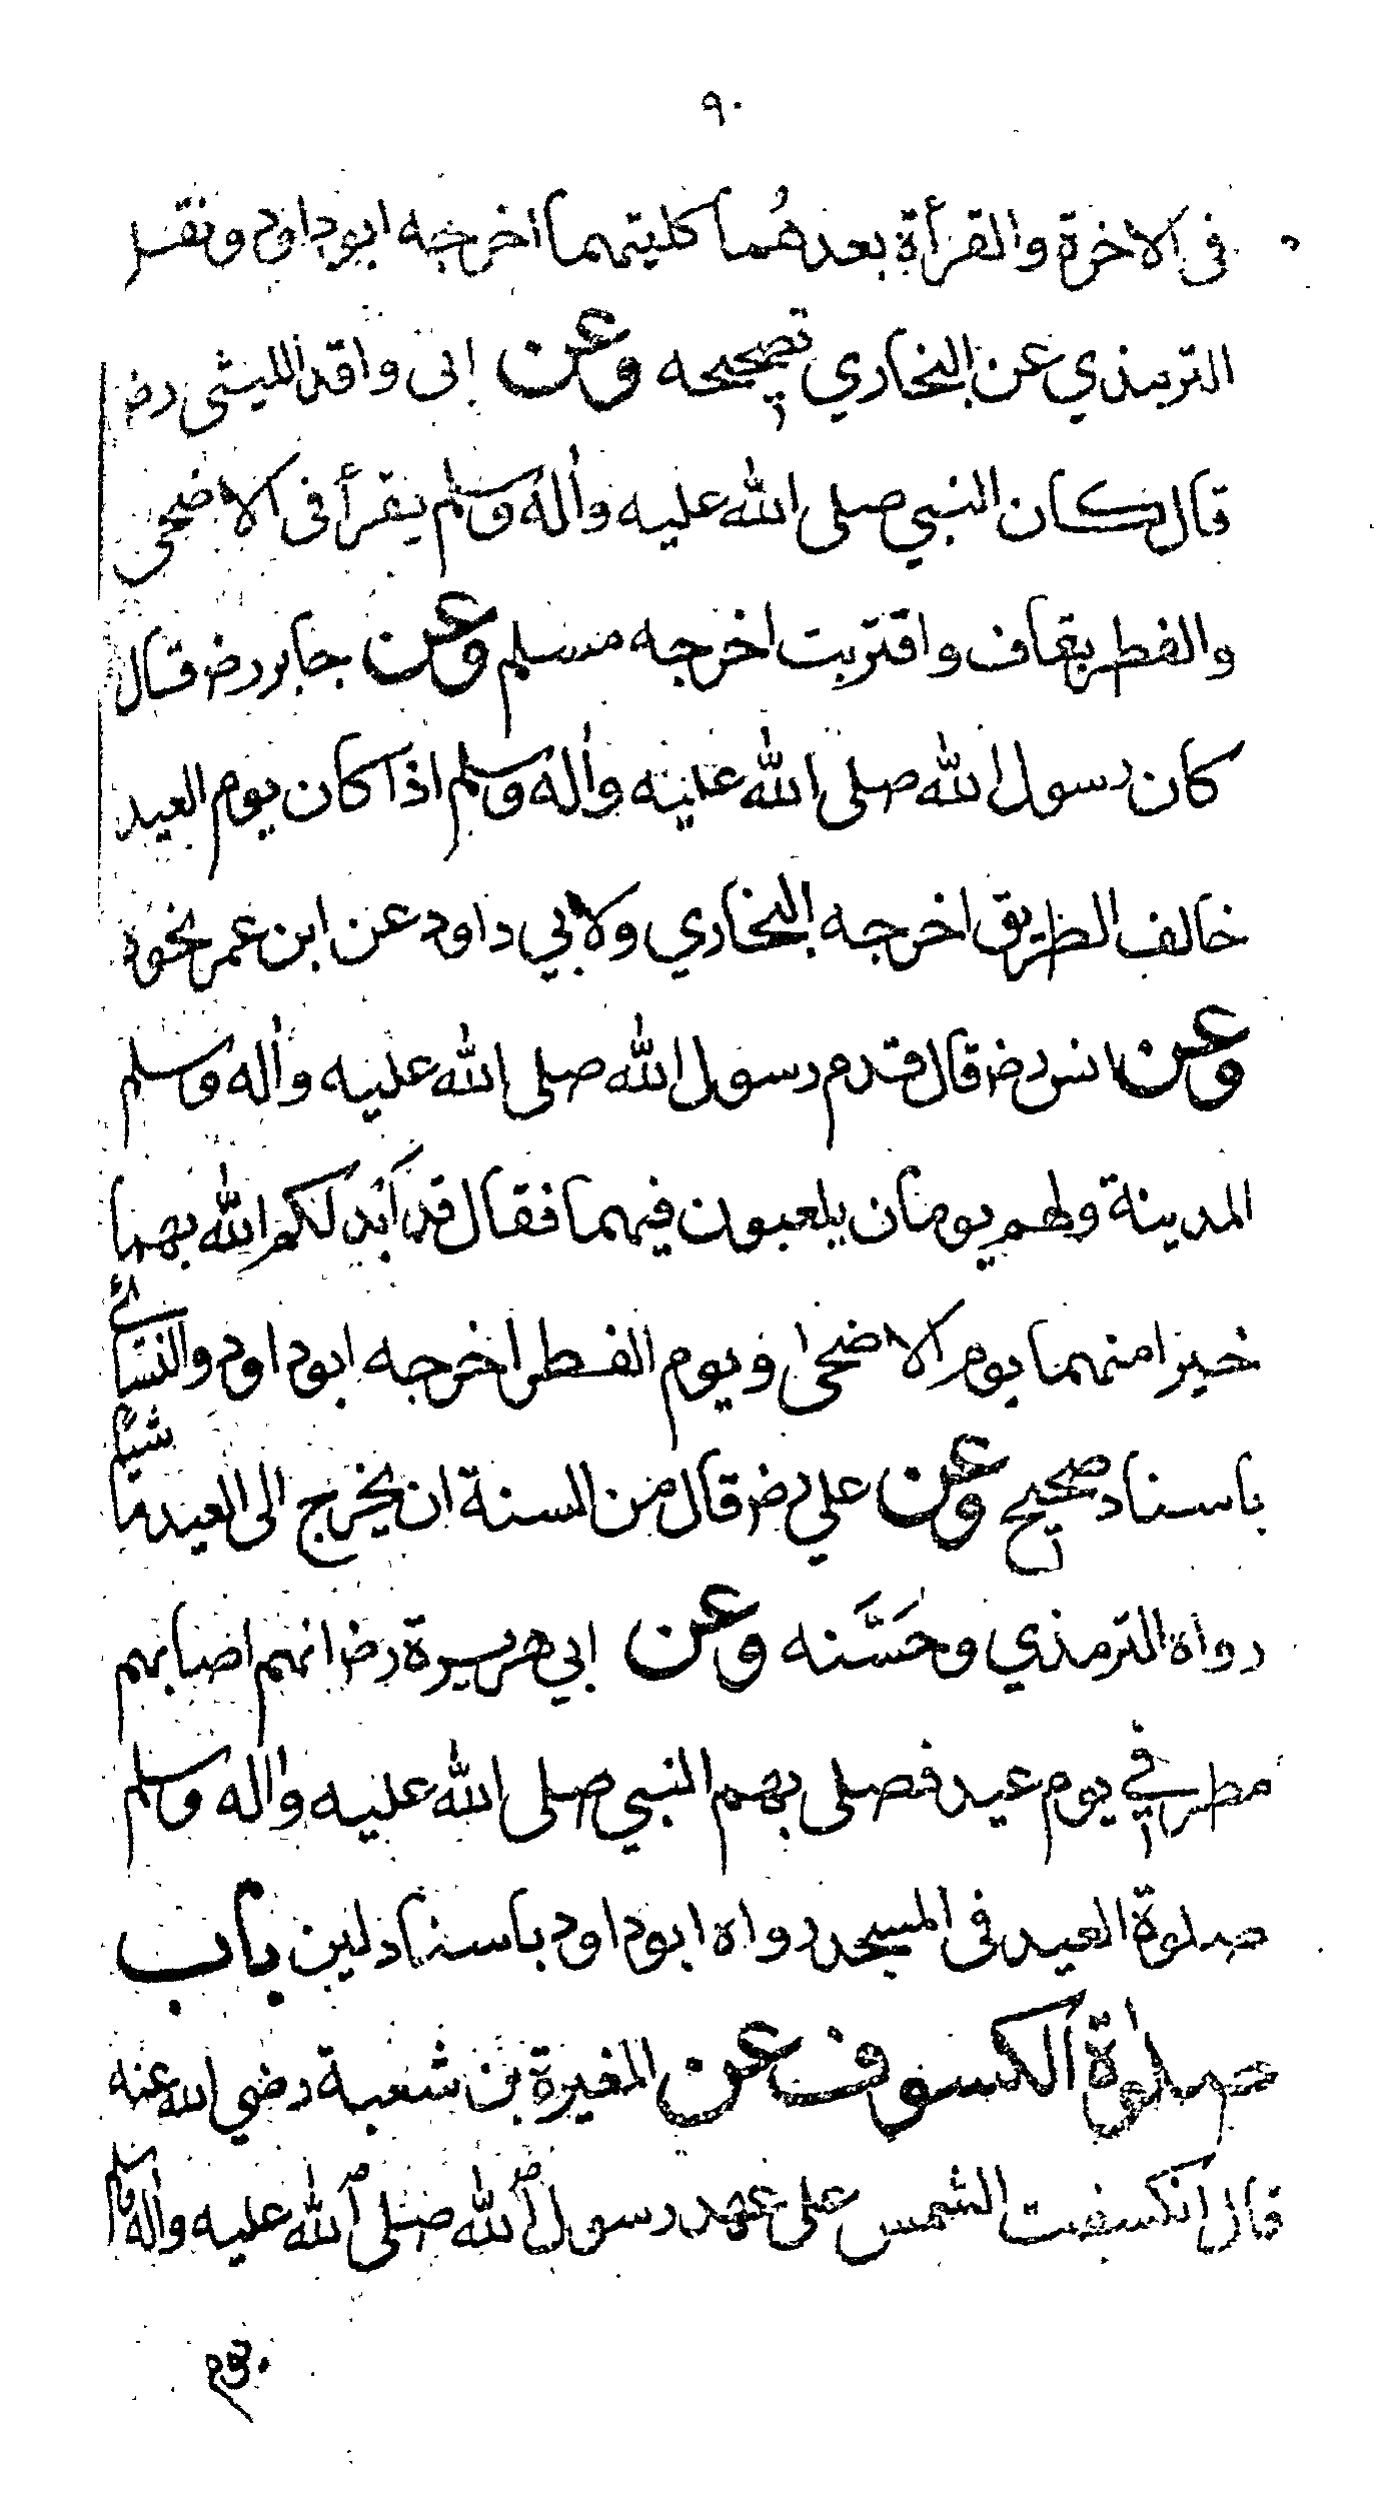 ٩٠
في الاخرة والقرأة بعدهُما كليتهما اخرجه ابوداود ونقل
الترمذي عن البخاري تصحيحه وعن ابى واقد الليثى رض
قال كان النبي صلى الله عليه واٰله وسلم يقرأ فى الاضحى
والفطر بقاف واقتربت اخرجه مسلم وعن جابر رض قال
كان رسول الله صلى الله عليه واٰله وسلم اذا كان يوم العيد
خالف الطريق اخرجه البخاري ولابي داود عن ابن عمر نحوه
وعن انس رض قال قدم رسول الله صلى الله عليه واٰله وسلم
المدينة ولهم يومان يلعبون فيهما فقال قد اَبْدلكم الله بهما
خيرا منهما يوم الاضحى ويوم الفطر اخرجه ابوداود والنسائے
باسناد صحيح وعن علي رض قال من السنة ان يخرج الى العيد ماشيًا
رواه الترمذي وحَسَّنه وعن ابي هريرة رض انهم اصابهم
مطر في يوم عيد فصلى بهم النبي صلى الله عليه واٰله وسلم
صلوة العيد فى المسجد رواه ابوداود باسناد لين باب
صلوٰة الكسوف عن المغيرة بن شعبة رضي الله عنه
قال انكسفت الشمس على عهد رسول الله صلى الله عليه واٰله وسلم